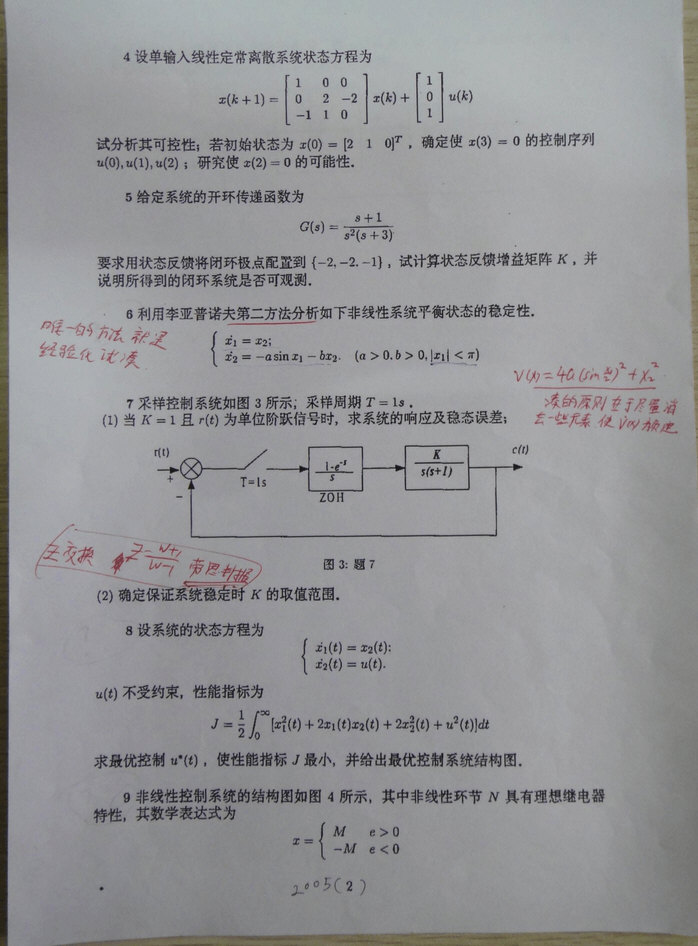 4 设单输入线性定常离散系统状态方程为
x(k+1) = [1 0 0; 0 2 -2; -1 1 0] x(k) + [1; 0; 1] u(k)
试分析其可控性；若初始状态为 x(0) = [2 1 0]^T ，确定使 x(3) = 0 的控制序列
u(0), u(1), u(2) ；研究使 x(2) = 0 的可能性．
5 给定系统的开环传递函数为
G(s) = (s+1)/(s²(s+3))
要求用状态反馈将闭环极点配置到 {-2, -2. -1} ，试计算状态反馈增益矩阵 K ，并
说明所得到的闭环系统是否可观测．
6 利用李亚普诺夫第二方法分析如下非线性系统平衡状态的稳定性．
唯一的方法就是
经验化试凑
{ ẋ₁ = x₂;
ẋ₂ = -a sin x₁ - bx₂. (a > 0. b > 0, |x₁| < π)
V(x) = 4a(sin x₁/2)² + x₂²
凑的原则
7 采样控制系统如图 3 所示；采样周期 T = 1s .
(1) 当 K = 1 且 r(t) 为单位阶跃信号时，求系统的响应及稳态误差；
r(t) + − T=1s (1-e^-s)/s ZOH K/(s(s+1)) c(t)
图 3: 题 7
Z变换 Z = (w+1)/(w-1) 劳思判据
(2) 确定保证系统稳定时 K 的取值范围．
8 设系统的状态方程为
{ ẋ₁(t) = x₂(t);
ẋ₂(t) = u(t).
u(t) 不受约束，性能指标为
J = 1/2 ∫₀^∞ [x₁²(t) + 2x₁(t)x₂(t) + 2x₂²(t) + u²(t)]dt
求最优控制 u*(t) ，使性能指标 J 最小，并给出最优控制系统结构图．
9 非线性控制系统的结构图如图 4 所示，其中非线性环节 N 具有理想继电器
特性，其数学表达式为
x = { M e > 0
-M e < 0
2005(2)